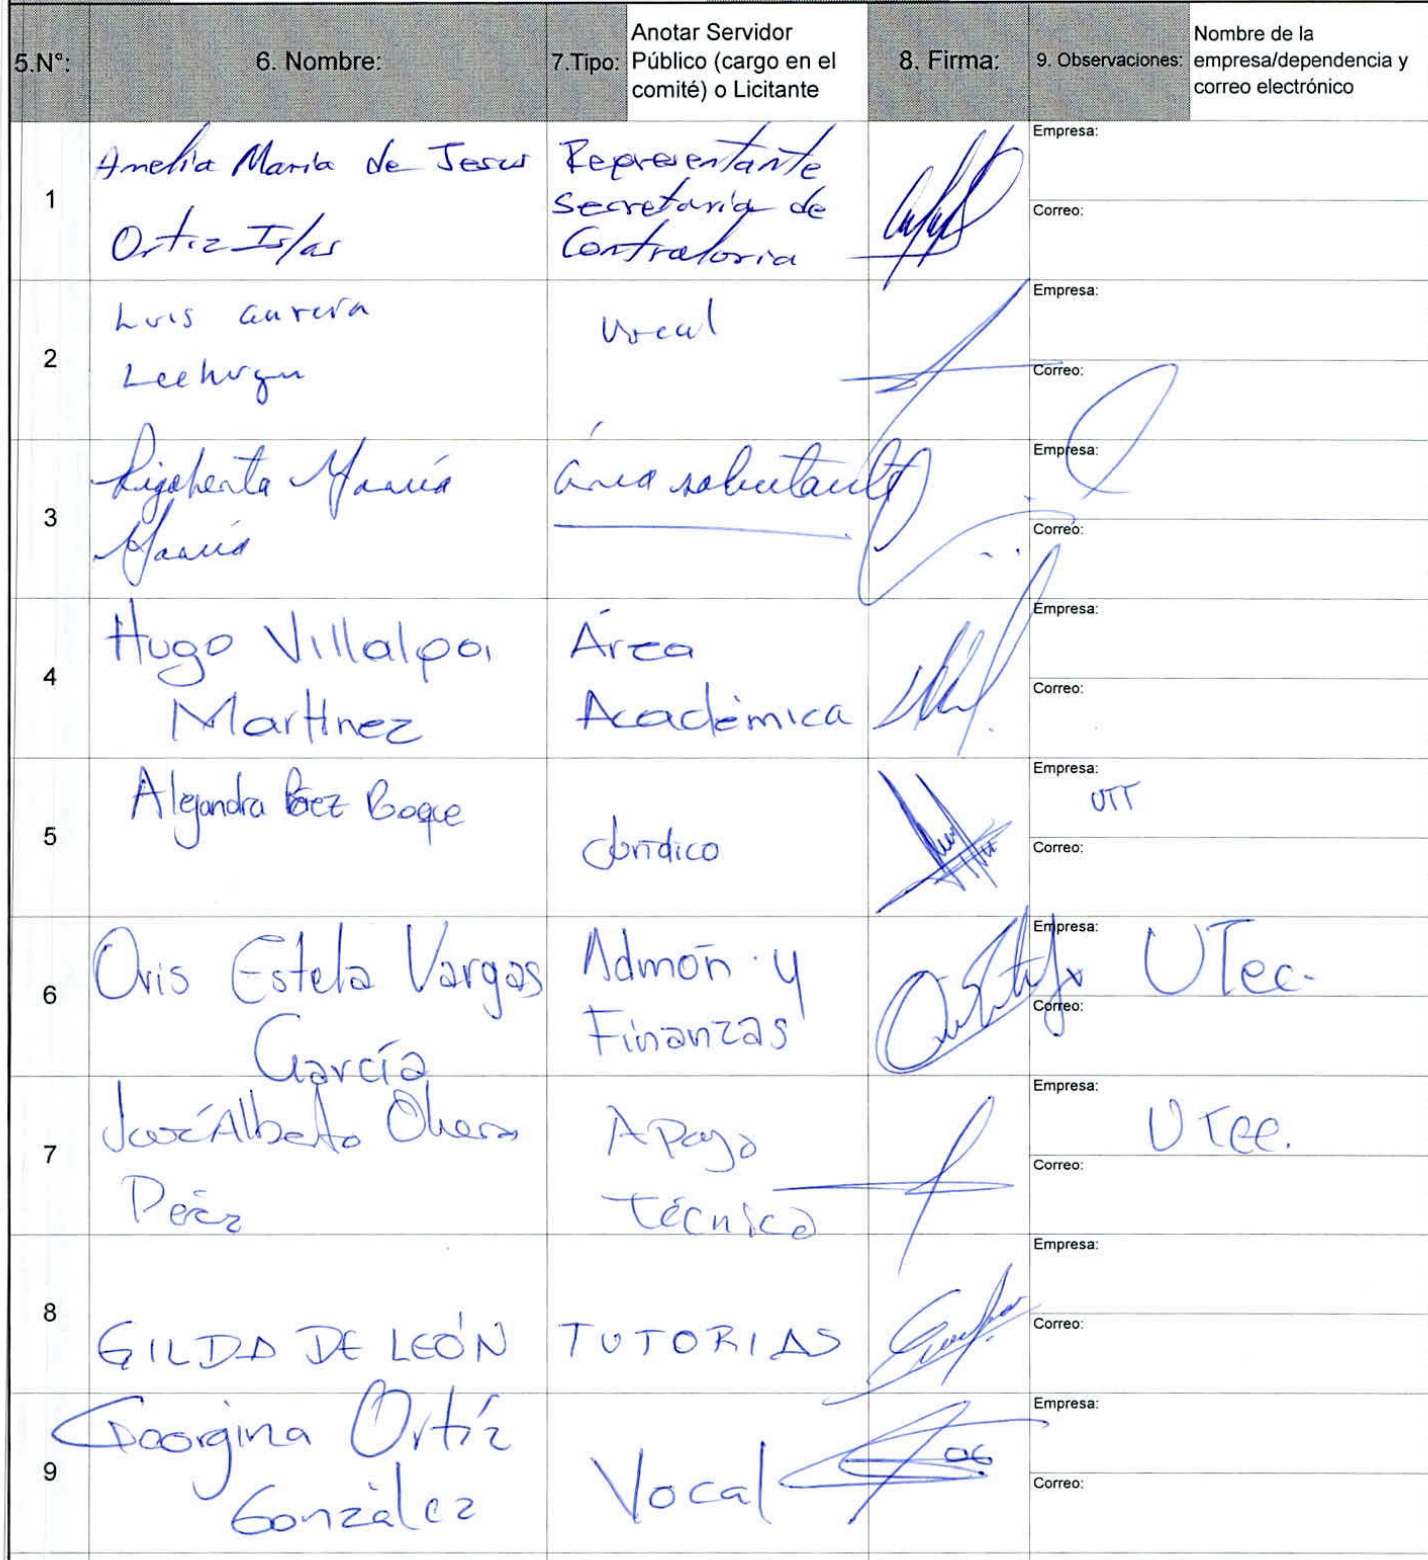 5.N°: 6. Nombre: 7.Tipo: Anotar Servidor Público (cargo en el comité) o Licitante 8. Firma: 9. Observaciones: Nombre de la empresa/dependencia y correo electrónico
1
Amelia María de Jesus
Ortiz Islas
Representante
Secretaria de
Contraloria
Empresa:
Correo:
2
Luis
Vocal
Empresa:
Correo:
3
Área solicitante
Empresa:
Correo:
4
Hugo
Martínez
Área
Académica
Empresa:
Correo:
5
Alejandra Báez Roque
Jurídico
Empresa:
UTT
Correo:
6
Oris Estela Vargas
García
Admón y
Finanzas
Empresa:
UTec.
Correo:
7
José Alberto
Apoyo
Técnico
Empresa:
UTec.
Correo:
8
GILDA DE LEÓN
TUTORIAS
Empresa:
Correo:
9
Georgina Ortíz
González
Vocal
Empresa:
Correo: